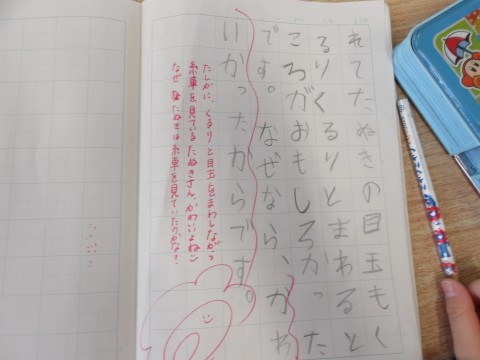 れてたぬきの目玉もく
るりくるりとまわると
ころがおもしろかった
です。なぜなら、かわ
いかったからです。
たしかに、くるりと目玉をまわしながら
糸車を見ているたぬきさん、かわいいよね。
なぜたぬきは糸車を見ていたのかな？